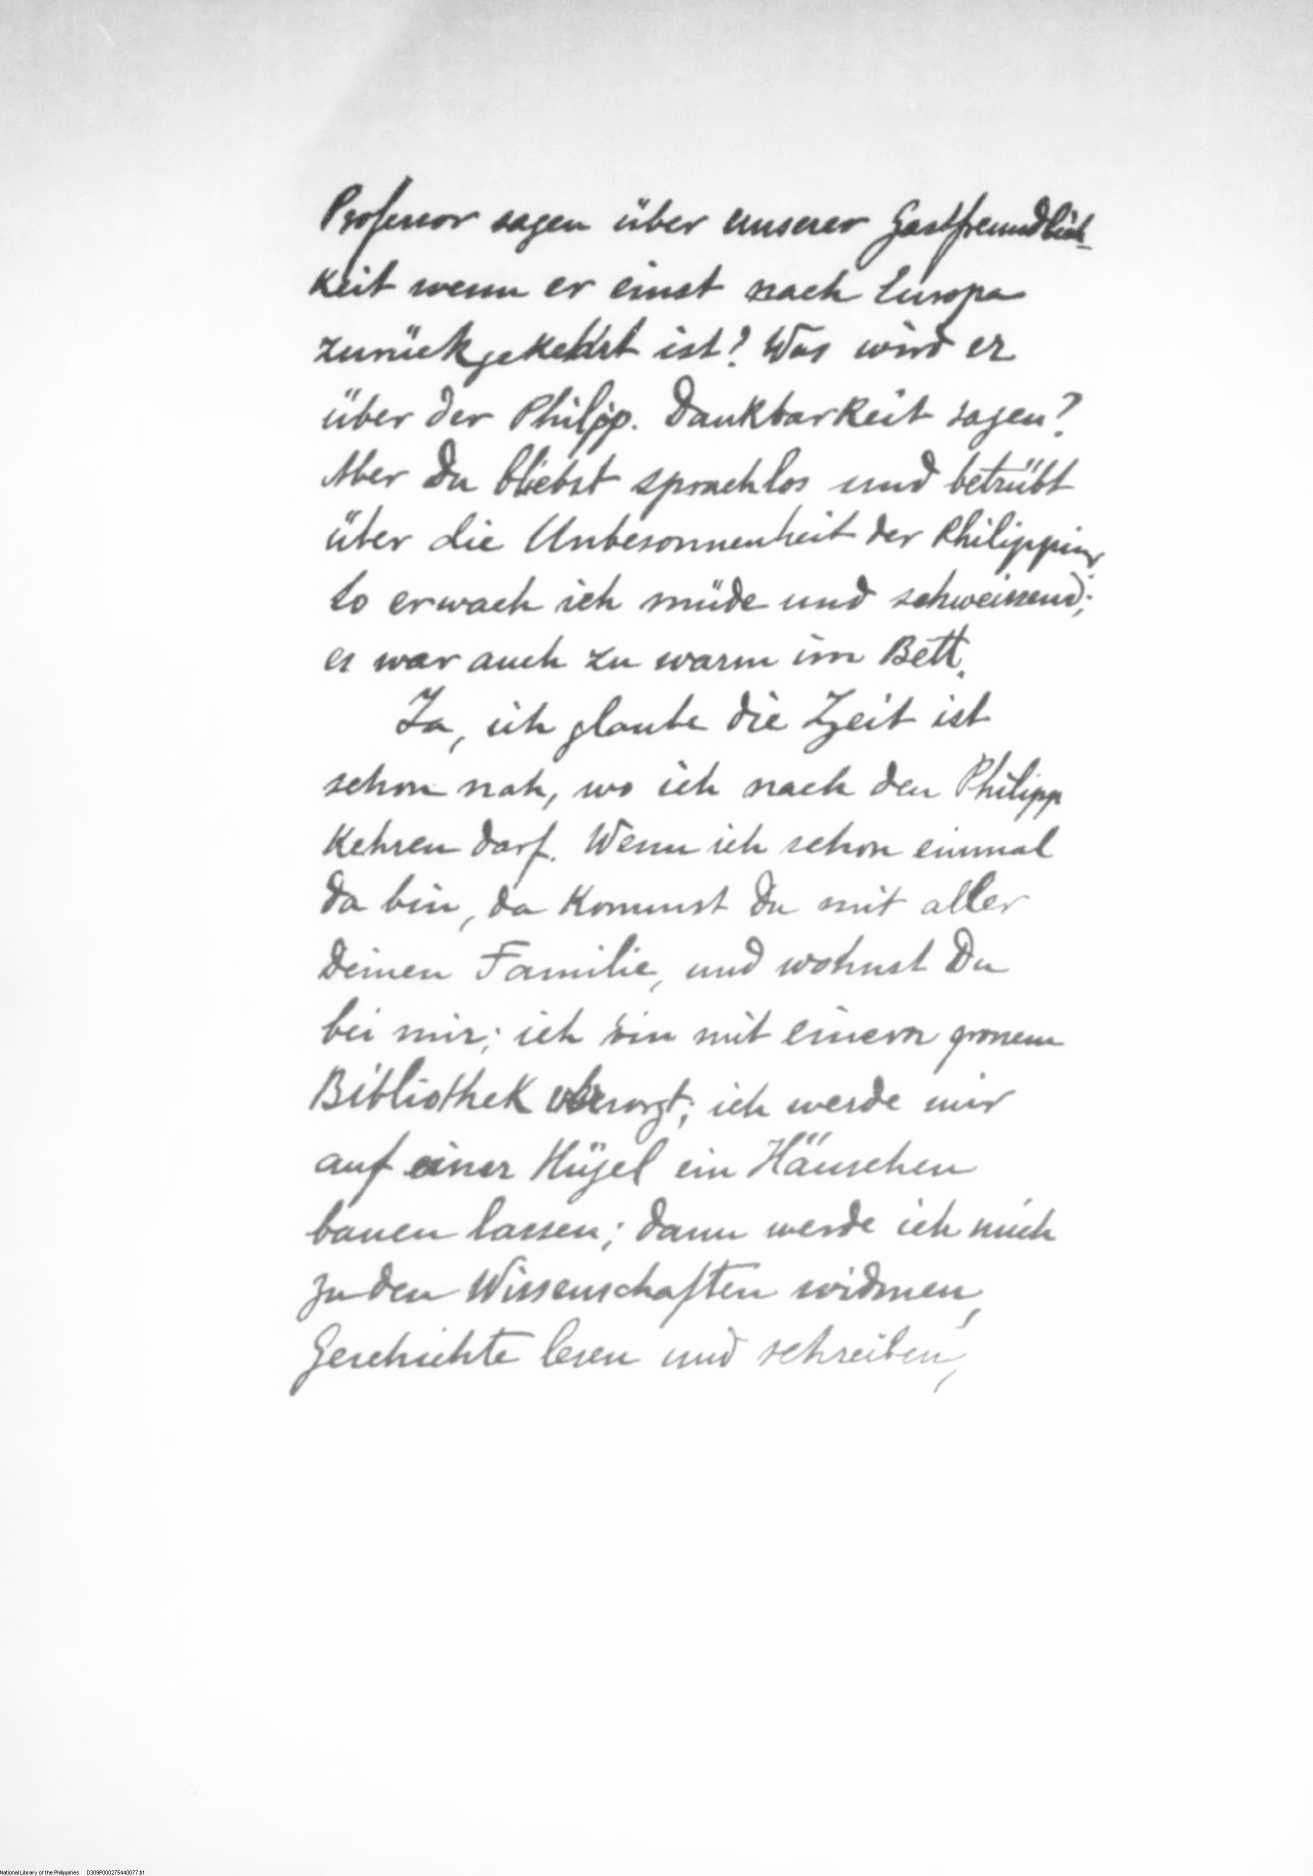 Professor sagen über unserer Gastfreundlich-
keit wenn er einst nach Europa
zurückgekehrt ist? Was wird er
über der Philipp. Dankbarkeit sagen?
Aber du bliebst sprachlos und betrübt
über die Unbesonnenheit der Philippiner
So erwach ich müde und schweissend;
es war auch zu warm im Bett.
Ja, ich glaube die Zeit ist
schon nah, wo ich nach den Philipp
kehren darf. Wenn ich schon einmal
da bin, da kommst du mit aller
deinen Familie, und wohnst Du
bei mir; ich bin mit einem grossem
Bibliothek versorgt; ich werde mir
auf einer Hügel ein Häuschen
bauen lassen; dann werde ich mich
zu den Wissenschaften widmen,
Geschichte lesen und schreiben,
National Library of the Philippines D309P000275440077.tif